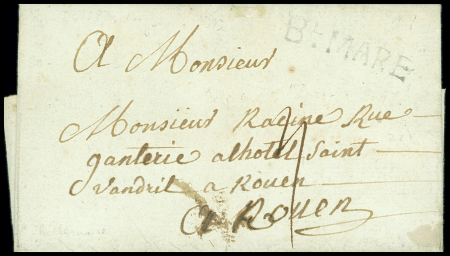 Bt MARE
A Monsieur
Monsieur Racine Rue
ganterie alhotel Saint
vandril a Rouen
A Rouen